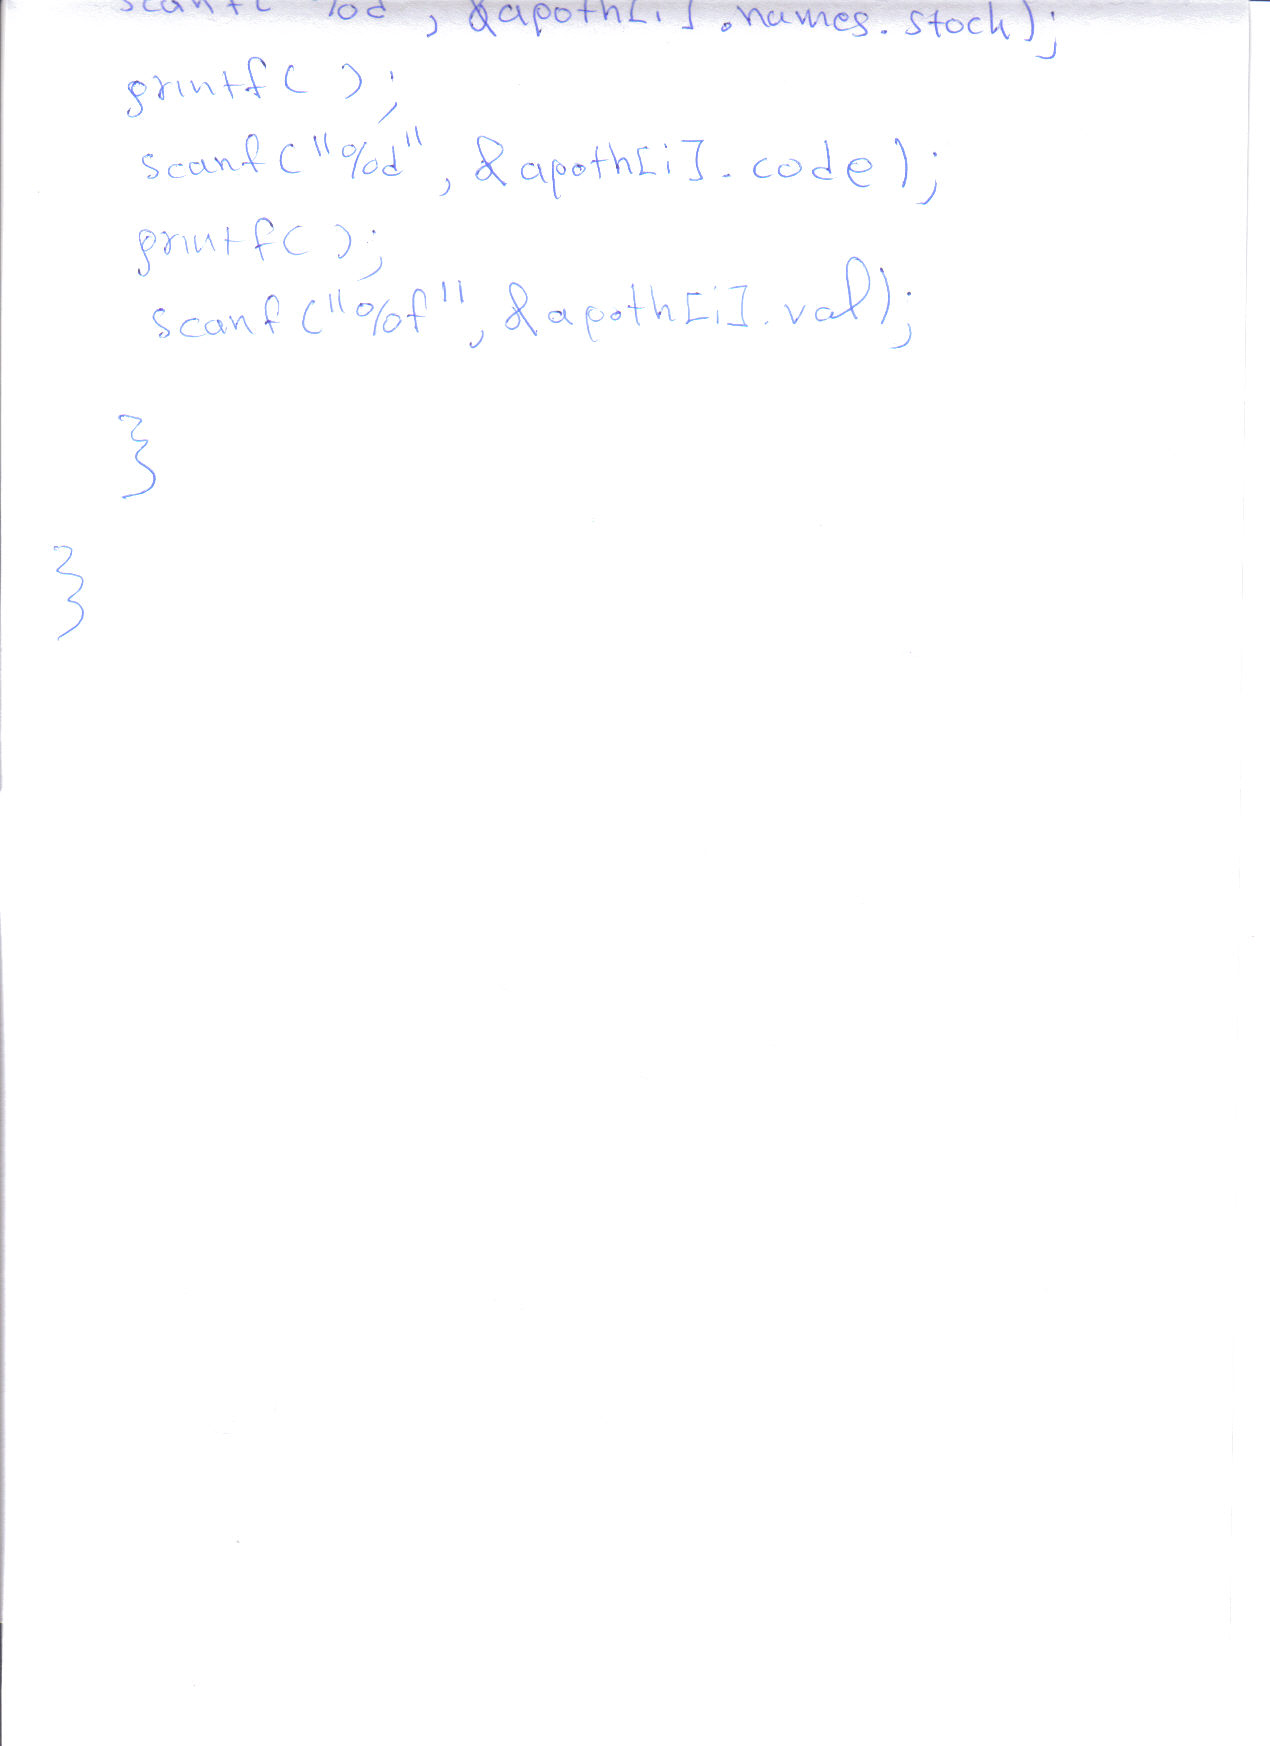 scanf("%d", &apoth[i].names.stock);
printf( );
scanf("%d", &apoth[i].code);
printf( );
scanf("%f", &apoth[i].val);
}
}